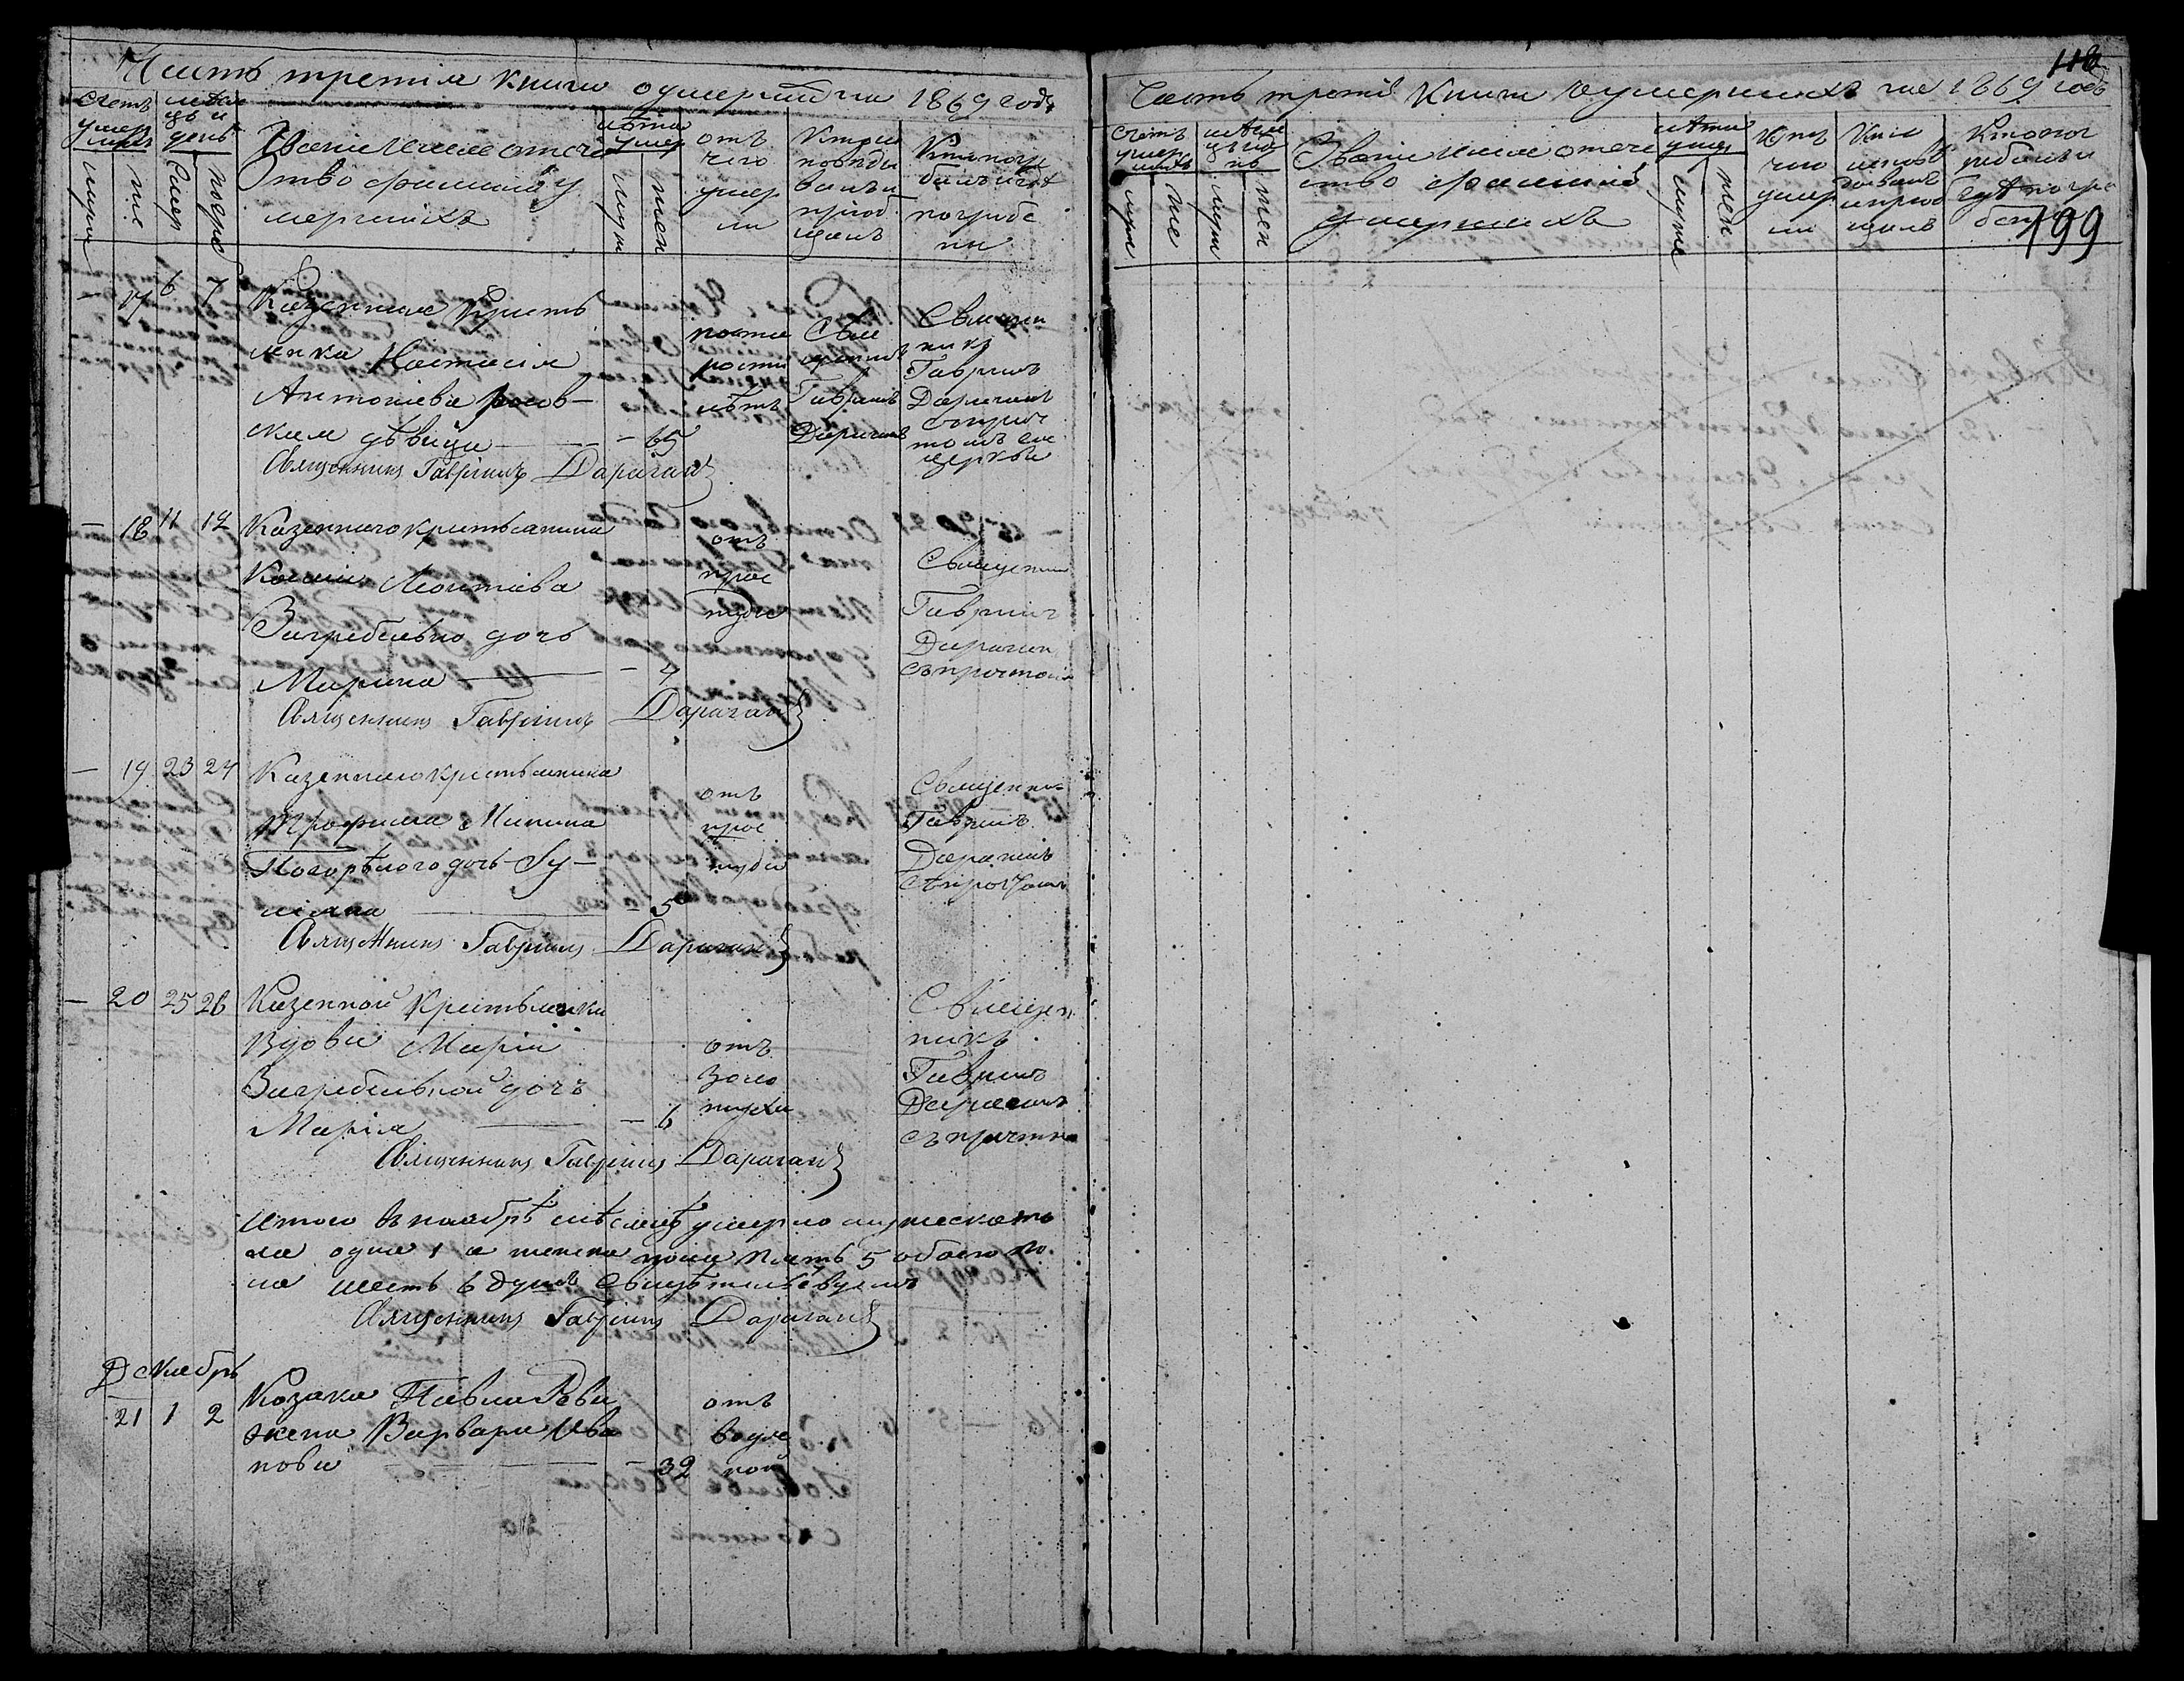 Часть третія книги о умершихъ на 1869 годъ
Счетъ умершихъ
мѣсяцъ и день
Званіе имя отечество фамилія умершихъ
лѣта умер
отъ чего умерли
Кто исповѣдывалъ и пріобщалъ
Кто погребалъ и гдѣ погребены
муж
же
Смер
погре
муж
жен
— 17 6 7 Казенная Крестьянка Настасія Антоніева дѣвица — 65
Священникъ Гавріилъ Дараганъ
Священникъ Гавріилъ Дараганъ
Священникъ Гавріилъ Дараганъ
— 18 11 12 Казеннаго крестьянина
Леонтіева
Загребельно дочь
Марина — 7
отъ простуды
Священник Гавріилъ Дараган съ причтомъ
Священникъ Гавріилъ Дараганъ
— 19 23 24 Казеннаго крестьянина
Трофима Минина
Погорѣлого дочь Іу-
ліяна — 5
отъ простуды
Священник Гавріилъ Дараганъ съ причтомъ
Священникъ Гавріилъ Дараганъ
— 20 25 26 Казенной Крестьянки
Вдовы Маріи
Загребельной дочь
Марія — 6
отъ золотухи
Священникъ Гавріилъ Дараганъ съ причтом
Священникъ Гавріилъ Дараганъ
Итого въ ноябрѣ мѣсяцѣ умерло мужеска по-
ла одна 1 а женска пола пять 5 обоего по-
ла шесть 6 душъ Свидѣтельствуемъ
Священникъ Гавріилъ Дараганъ
Декабрь
21 1 2 Козака Павла Рѣви
жена Варвара Ива
нова — 32
отъ водяной
118
Часть третія Книги о умершихъ на 1869 годъ
Счетъ умершихъ
Званіе имя отечество фамилія умершихъ
лѣта умер
Отъ чего умерли
Кто исповѣдывалъ и пріобщалъ
Кто погребалъ и гдѣ погребены
199
муж
же
муж
жен
муже
жен